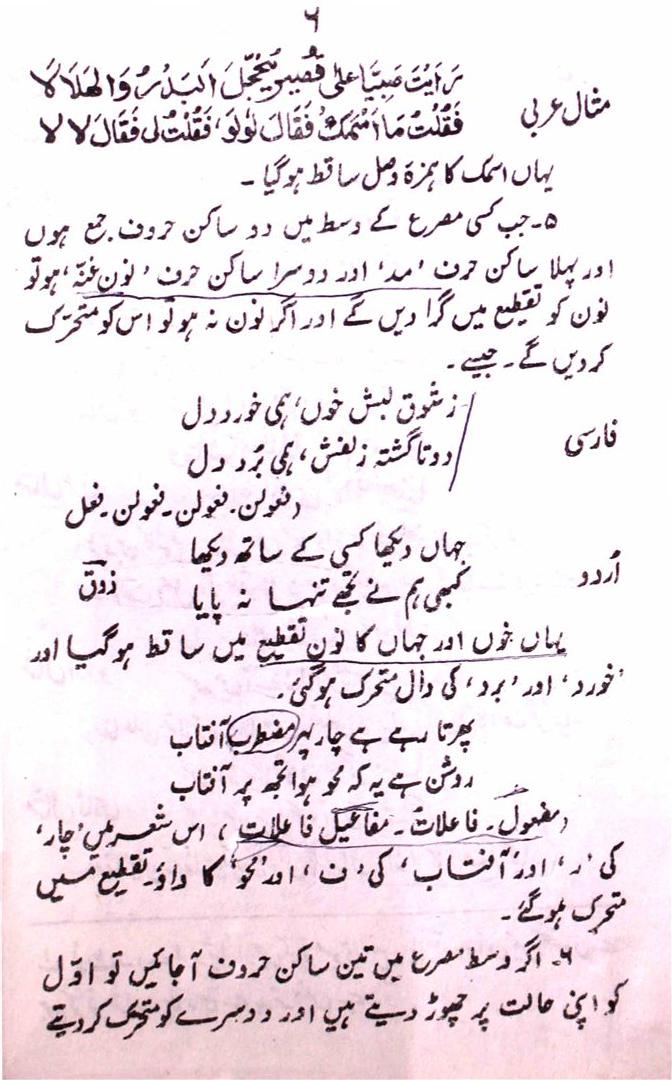 ۶
رَایْتُ صَبِیًّا عَلیٰ قُصَیْرٍ یُخَجِّلُ الْبَدْرُ وَالْهِلَالَا
مثال عربی
فَقُلْتُ مَا اسْمُکَ فَقَالَ لَوْلَوْ، فَقُلْتُ لِیْ فَقَالَ لَا لَا
یہاں اسمک کا ہمزۂ وصل ساقط ہوگیا۔
۵۔ جب کسی مصرع کے وسط میں دو ساکن حروف جمع ہوں
اور پہلا ساکن حرف ’مد‘ اور دوسرا ساکن حرف ’نون غنّہ‘ ہو تو
نون کو تقطیع میں گرا دیں گے اور اگر نون نہ ہو تو اس کو متحرّک
کردیں گے۔ جیسے۔
زشوق لبش خوں، ہمی خورد دل
فارسی
دوتا گشتہ زلفش، ہمی بُرد دل
(فعولن۔ فعولن۔ فعولن۔ فعل
جہاں دیکھا کسی کے ساتھ دیکھا
اُردو
کبھی ہم نے تجھے تنہا نہ پایا
ذوق
یہاں خوں اور جہاں کا نون تقطیع میں ساقط ہوگیا اور
’خورد‘ اور ’برد‘ کی دال متحرک ہوگئی۔
پھرتا رہے ہے چار پہر مضطرب آفتاب
روشن ہے یہ کہ محو ہوا تجھ پر آفتاب
(مفعول۔ فاعلاتُ۔ مفاعیل فاعلات)، اس شعر میں ’چار‘
کی ’ر‘ اور ’آفتاب‘ کی ’ف‘ اور ’محو‘ کا واؤ۔ تقطیع میں
متحرک ہوگئے۔
۶۔ اگر وسط مصرع میں تین ساکن حروف آجائیں تو اوّل
کو اپنی حالت پر چھوڑ دیتے ہیں اور دوسرے کو متحرک کردیتے